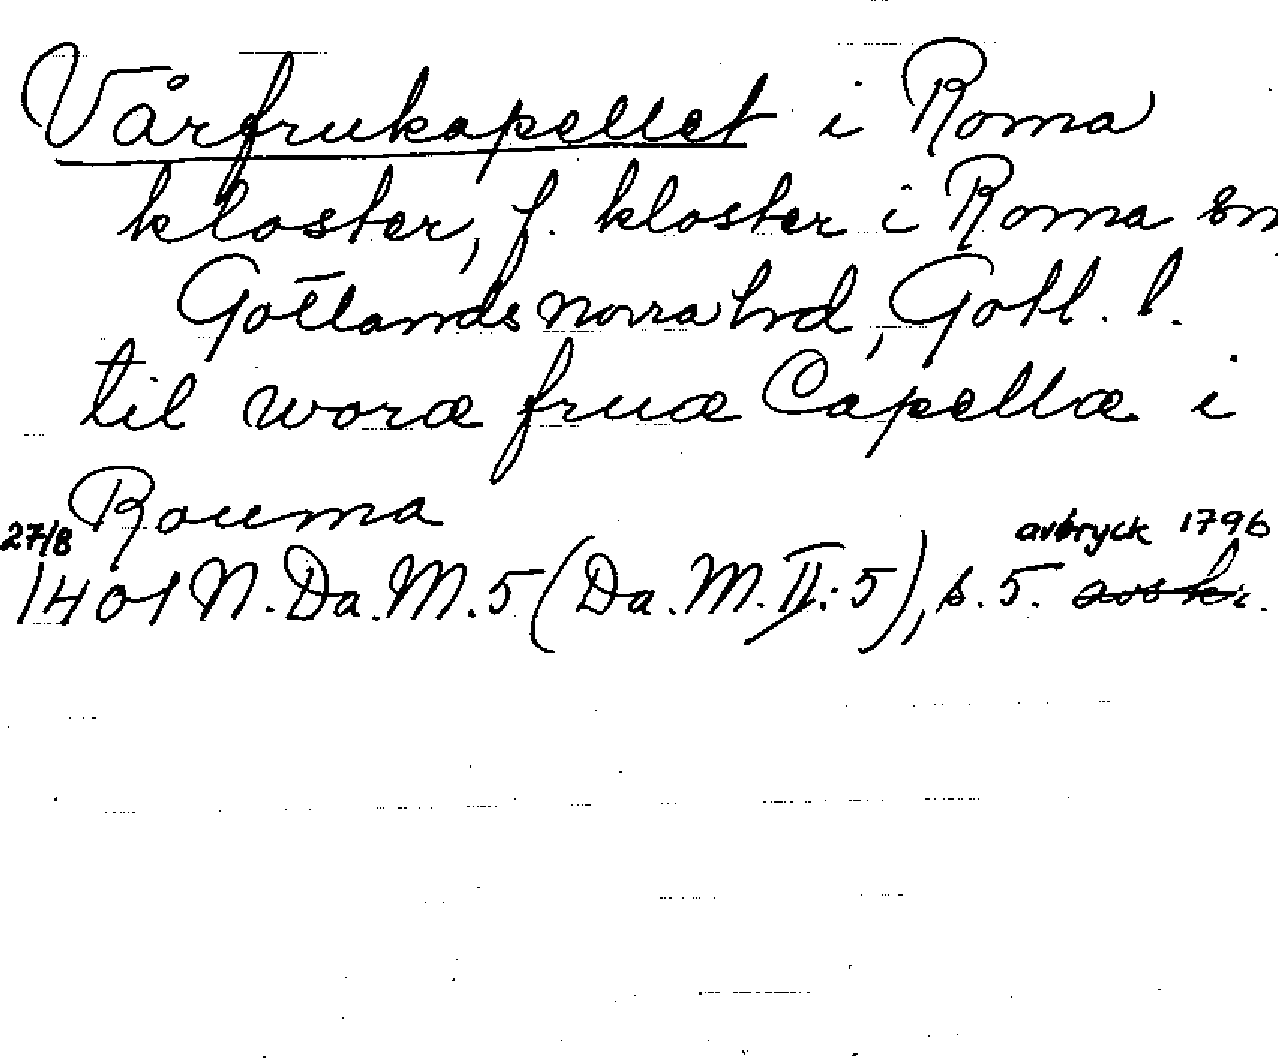 Vårfrukapellet i Roma
kloster, f. kloster i Roma sn
Gotlands norra hrd, Gotl. l.
til woræ fruæ Capellæ i
Rouma
27/8 avbryck 1796
1401 N. Da. M. 5 (Da. M. II: 5), s. 5. avskr.